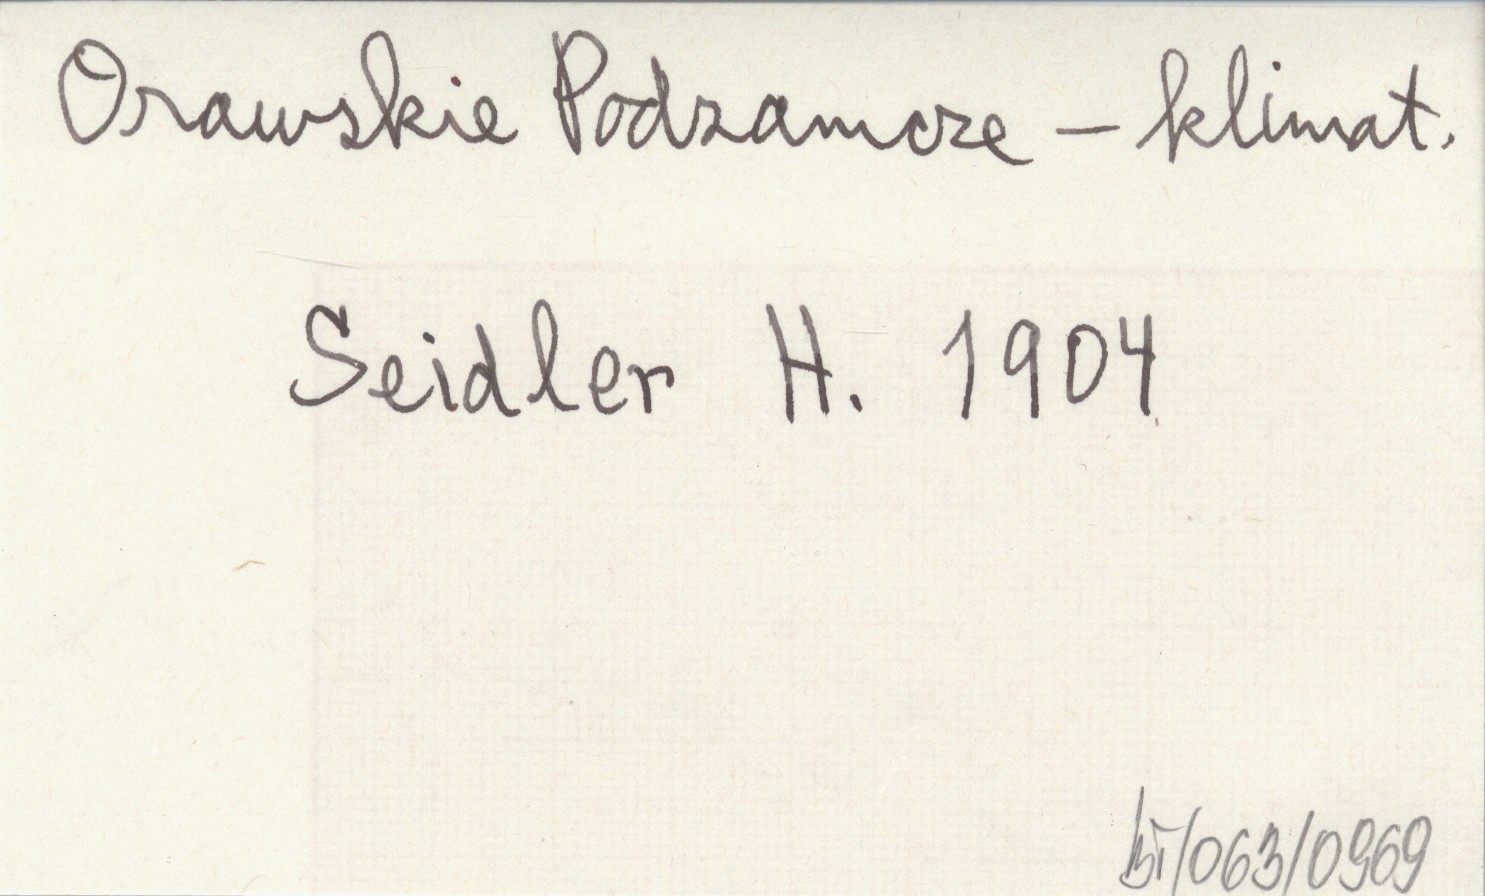 Orawskie Podzamcze – klimat.
Seidler H. 1904
bi/063/0969